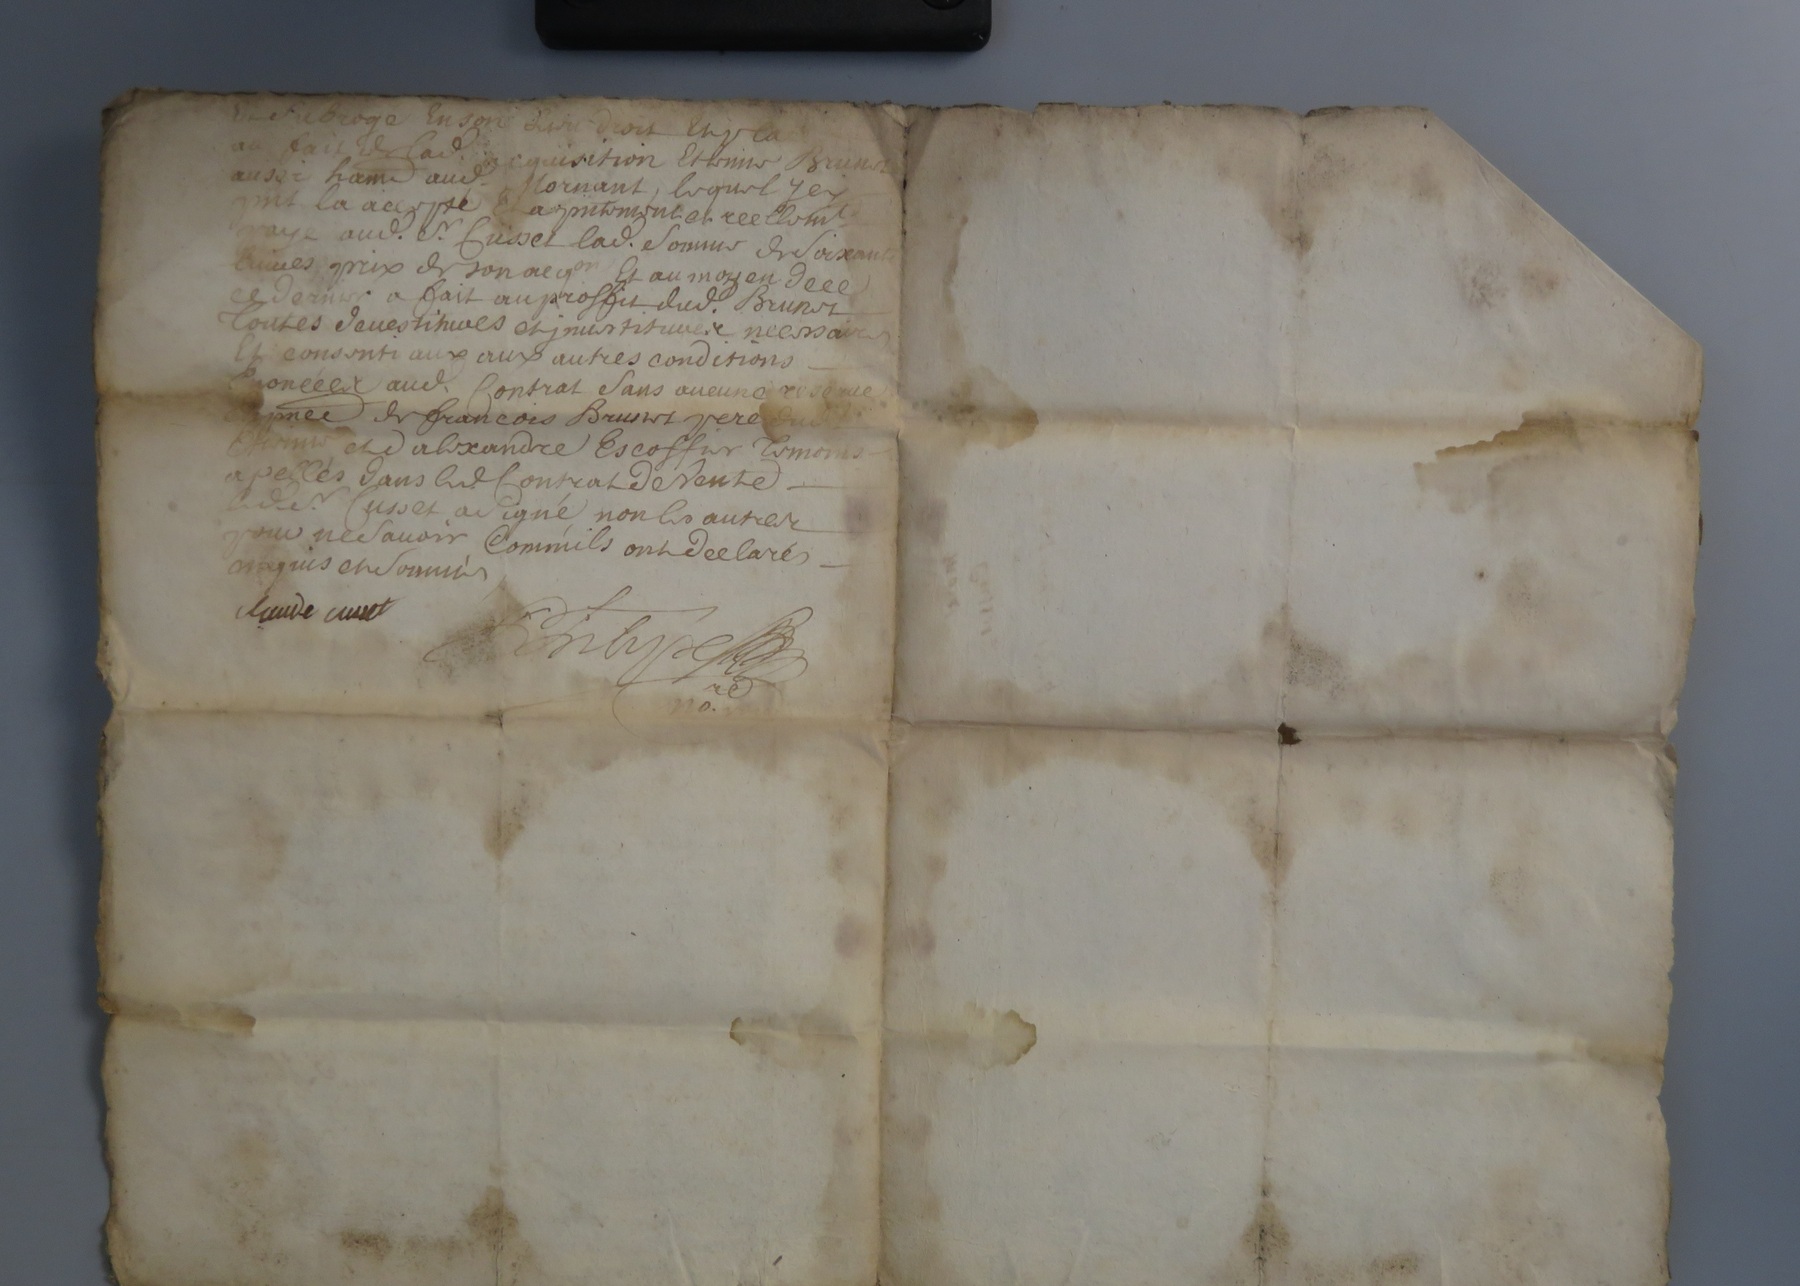 et subroge en son lieu droit et place
au fait de lad. acquisition Etienne Brunet
aussi hant aud. Mornant, lequel icy
pnt la accepté et a pntement et reelemt
paye aud. Sr. Cusset lad. somme de soixante
livres prix de son acqon Et au moyen de ce
ce dernier a fait au proffit dud. Brunet
toutes devestitures et jnvestitures necessaires
Et consenti aux aux autres conditions
enoncées aud. Contrat sans aucune reserve
de francois Brunet pere dud.
Etienne et d'alexandre Escoffier temoins
apellés dans led. Contrat de Vente
led. Sr. Cusset a signé non les autres
pour ne savoir comm'ils ont declarés
requis et sommés
claude cusset
nore